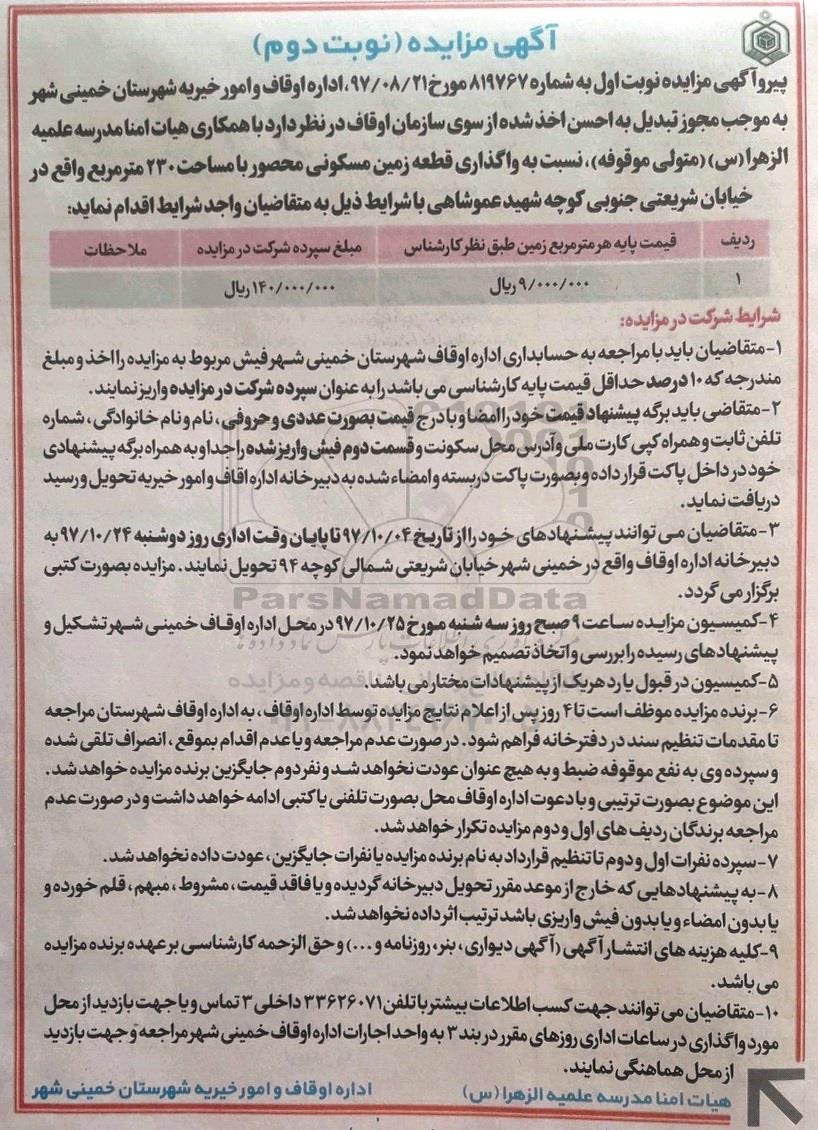 آگهی مزایده (نوبت دوم)
پیرو آگهی مزایده نوبت اول به شماره ۸۱۹۷۶۷ مورخ ۹۷/۰۸/۲۱، اداره اوقاف و امور خیریه شهرستان خمینی شهر
به موجب مجوز تبدیل به احسن اخذ شده از سوی سازمان اوقاف در نظر دارد با همکاری هیات امنا مدرسه علمیه
الزهرا (س) (متولی موقوفه)، نسبت به واگذاری قطعه زمین مسکونی محصور با مساحت ۲۳۰ مترمربع واقع در
خیابان شریعتی جنوبی کوچه شهید عموشاهی با شرایط ذیل به متقاضیان واجد شرایط اقدام نماید:
ردیف قیمت پایه هر مترمربع زمین طبق نظر کارشناس مبلغ سپرده شرکت در مزایده ملاحظات
۱ ۹/۰۰۰/۰۰۰ ریال ۱۴۰/۰۰۰/۰۰۰ ریال
شرایط شرکت در مزایده:
۱-متقاضیان باید با مراجعه به حسابداری اداره اوقاف شهرستان خمینی شهر فیش مربوط به مزایده را اخذ و مبلغ
مندرجه که ۱۰ درصد حداقل قیمت پایه کارشناسی می باشد را به عنوان سپرده شرکت در مزایده واریز نمایند.
۲-متقاضی باید برگه پیشنهاد قیمت خود را امضا و با درج قیمت بصورت عددی و حروفی، نام و نام خانوادگی، شماره
تلفن ثابت و همراه کپی کارت ملی و آدرس محل سکونت و قسمت دوم فیش واریز شده را جدا و به همراه برگه پیشنهادی
خود در داخل پاکت قرار داده و بصورت پاکت دربسته و امضاء شده به دبیرخانه اداره اقاف و امور خیریه تحویل و رسید
دریافت نماید.
۳-متقاضیان می توانند پیشنهادهای خود را از تاریخ ۹۷/۱۰/۰۴ تا پایان وقت اداری روز دوشنبه ۹۷/۱۰/۲۴ به
دبیرخانه اداره اوقاف واقع در خمینی شهر خیابان شریعتی شمالی کوچه ۹۴ تحویل نمایند. مزایده بصورت کتبی
برگزار می گردد.
ParsNamadData
۴-کمیسیون مزایده ساعت ۹ صبح روز سه شنبه مورخ ۹۷/۱۰/۲۵ در محل اداره اوقاف خمینی شهر تشکیل و
پیشنهادهای رسیده را بررسی و اتخاذ تصمیم خواهد نمود.
۵-کمیسیون در قبول یا رد هریک از پیشنهادات مختار می باشد.
۶-برنده مزایده موظف است تا ۴ روز پس از اعلام نتایج مزایده توسط اداره اوقاف، به اداره اوقاف شهرستان مراجعه
تا مقدمات تنظیم سند در دفترخانه فراهم شود. در صورت عدم مراجعه و یا عدم اقدام بموقع، انصراف تلقی شده
و سپرده وی به نفع موقوفه ضبط و به هیچ عنوان عودت نخواهد شد و نفر دوم جایگزین برنده مزایده خواهد شد.
این موضوع بصورت ترتیبی و با دعوت اداره اوقاف محل بصورت تلفنی یا کتبی ادامه خواهد داشت و در صورت عدم
مراجعه برندگان ردیف های اول و دوم مزایده تکرار خواهد شد.
۷-سپرده نفرات اول و دوم تا تنظیم قرارداد به نام برنده مزایده یا نفرات جایگزین، عودت داده نخواهد شد.
۸-به پیشنهادهایی که خارج از موعد مقرر تحویل دبیرخانه گردیده و یا فاقد قیمت، مشروط، مبهم، قلم خورده و
یا بدون امضاء و یا بدون فیش واریزی باشد ترتیب اثر داده نخواهد شد.
۹-کلیه هزینه های انتشار آگهی (آگهی دیواری، بنر، روزنامه و...) و حق الزحمه کارشناسی بر عهده برنده مزایده
می باشد.
۱۰-متقاضیان می توانند جهت کسب اطلاعات بیشتر با تلفن ۳۳۶۲۶۰۷۱ داخلی ۳ تماس و یا جهت بازدید از محل
مورد واگذاری در ساعات اداری روزهای مقرر در بند ۳ به واحد اجارات اداره اوقاف خمینی شهر مراجعه و جهت بازدید
از محل هماهنگی نمایند.
هیات امنا مدرسه علمیه الزهرا (س) اداره اوقاف و امور خیریه شهرستان خمینی شهر